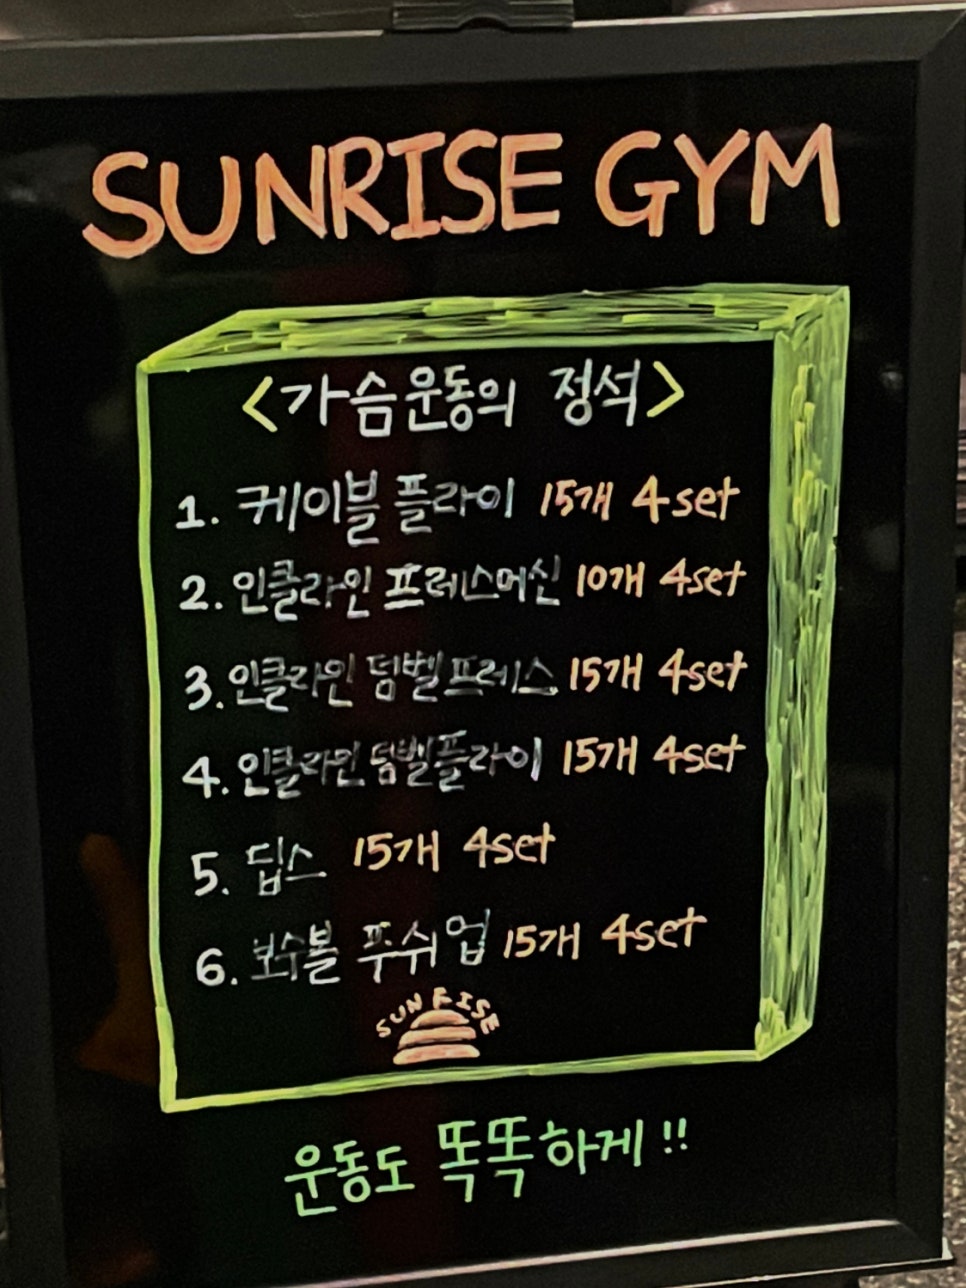 SUNRISE GYM
<가슴운동의 정석>
1. 케이블 플라이 15개 4set
2. 인클라인 프레스머신 10개 4set
3. 인클라인 덤벨프레스 15개 4set
4. 인클라인덤벨플라이 15개 4set
5. 딥스 15개 4set
6. 보수볼 푸쉬업 15개 4set
SUNRISE
운동도 똑똑하게!!